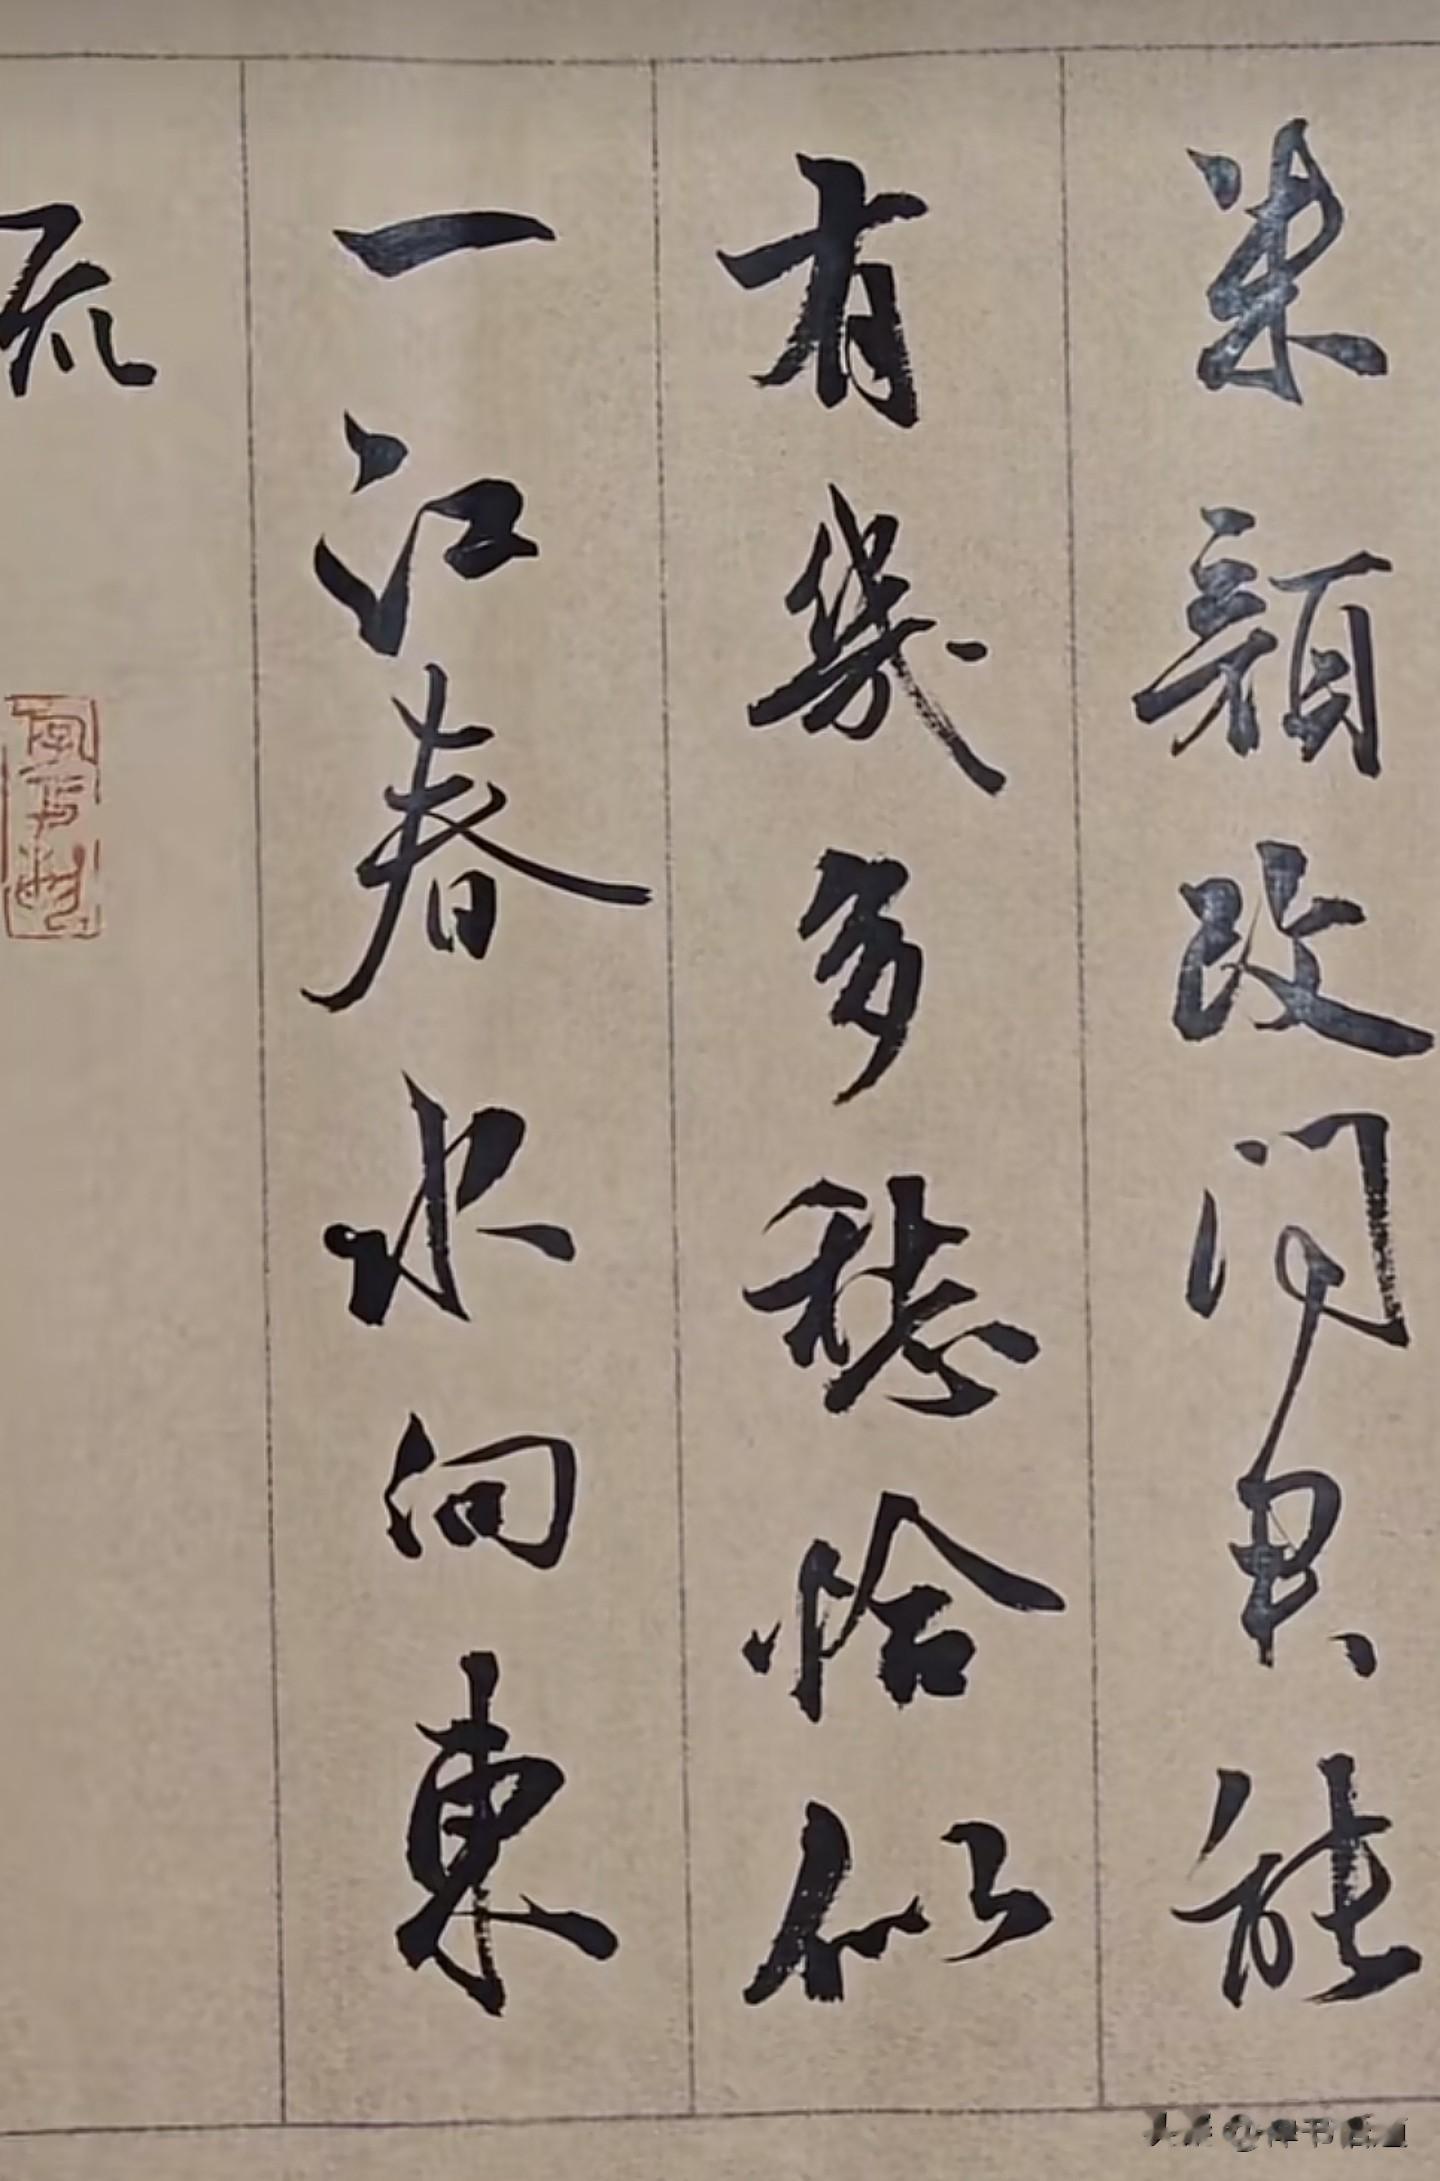 朱顔改問君能
有幾多愁恰似
一江春水向東
流